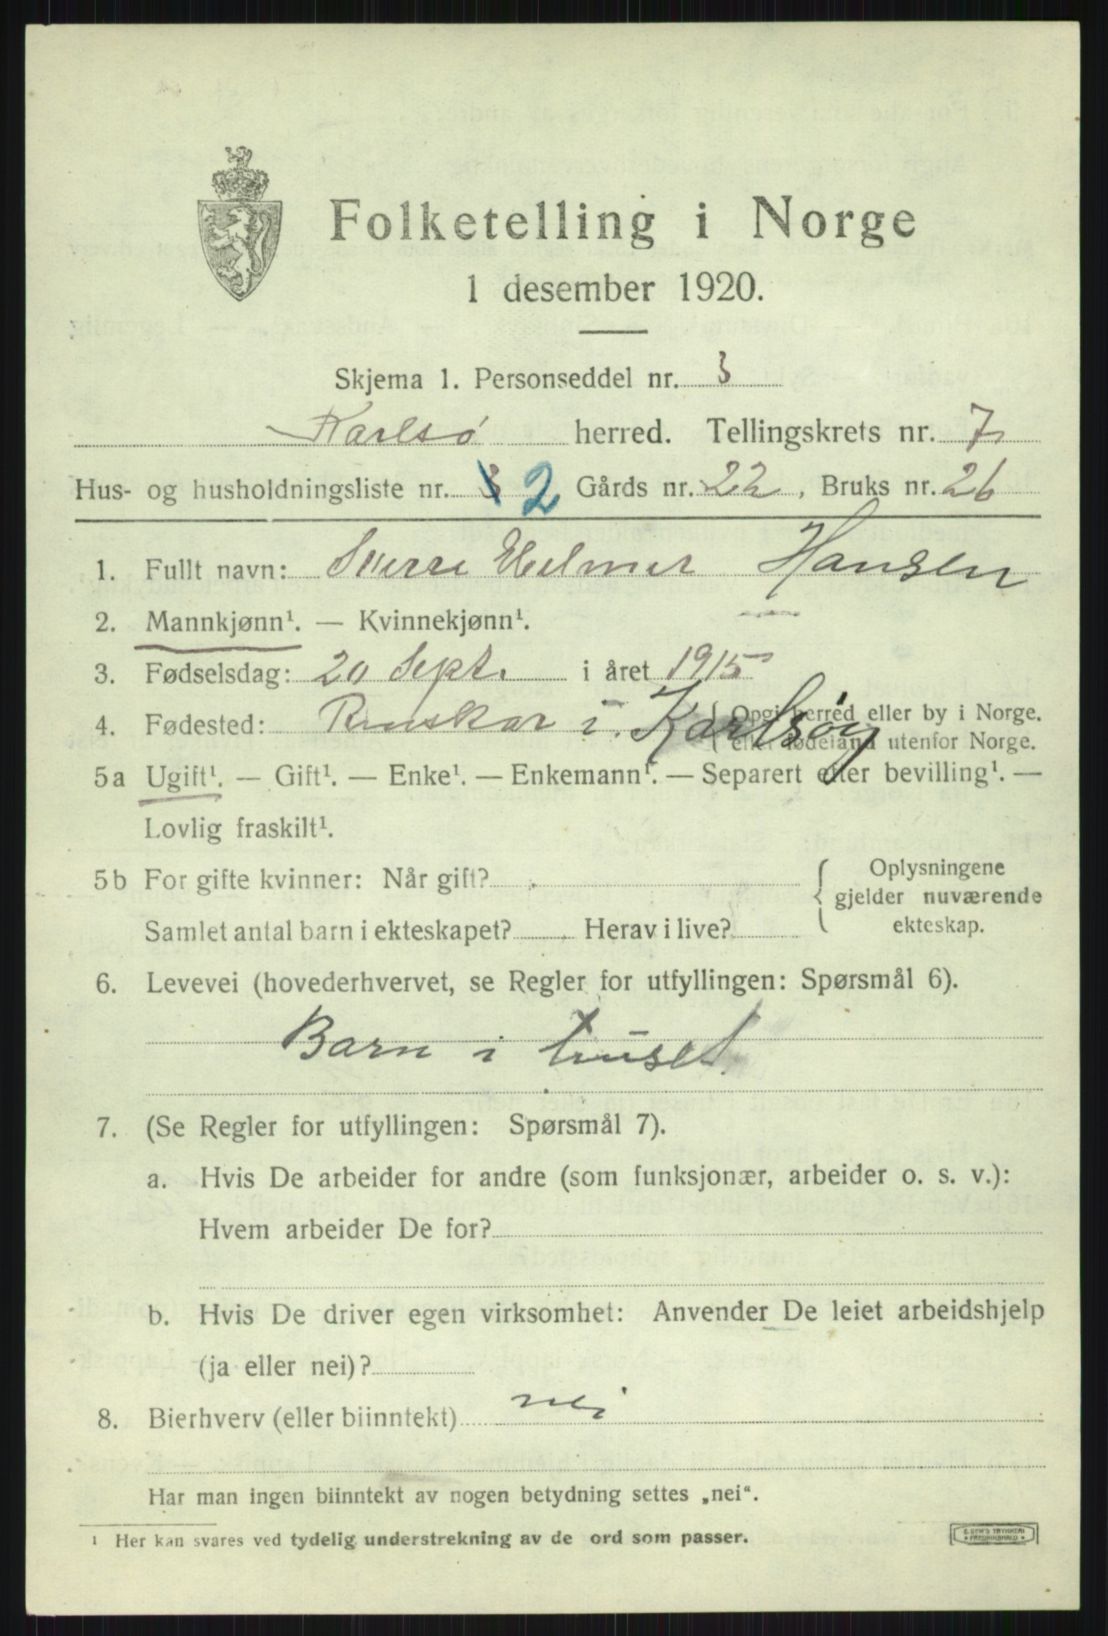 Folketelling i Norge
1 desember 1920.
Skjema 1. Personseddel nr. 3
Karlsø herred. Tellingskrets nr. 7
Hus- og husholdningsliste nr. 3 2 Gårds nr. 22, Bruks nr. 26
1. Fullt navn: Sverre Helmer Hansen
2. Mannkjønn¹. — Kvinnekjønn¹.
3. Fødselsdag: 20 Sept. i året 1915
4. Fødested: i Karlsøy { Opgi herred eller by i Norge,
eller fødeland utenfor Norge.
5a Ugift¹. — Gift¹. — Enke¹. — Enkemann¹. — Separert efter bevilling¹. —
Lovlig fraskilt¹.
5b For gifte kvinner: Når gift? { Oplysningene
gjelder nuværende
Samlet antal barn i ekteskapet? Herav i live? ekteskap.
6. Levevei (hovederhvervet, se Regler for utfyllingen: Spørsmål 6).
Barn i huset
7. (Se Regler for utfyllingen: Spørsmål 7).
a. Hvis De arbeider for andre (som funksjonær, arbeider o. s. v.):
Hvem arbeider De for?
b. Hvis De driver egen virksomhet: Anvender De leiet arbeidshjelp
(ja eller nei)?
8. Bierhverv (eller biinntekt) nei
Har man ingen biinntekt av nogen betydning settes „nei".
¹ Her kan svares ved tydelig understrekning av de ord som passer.